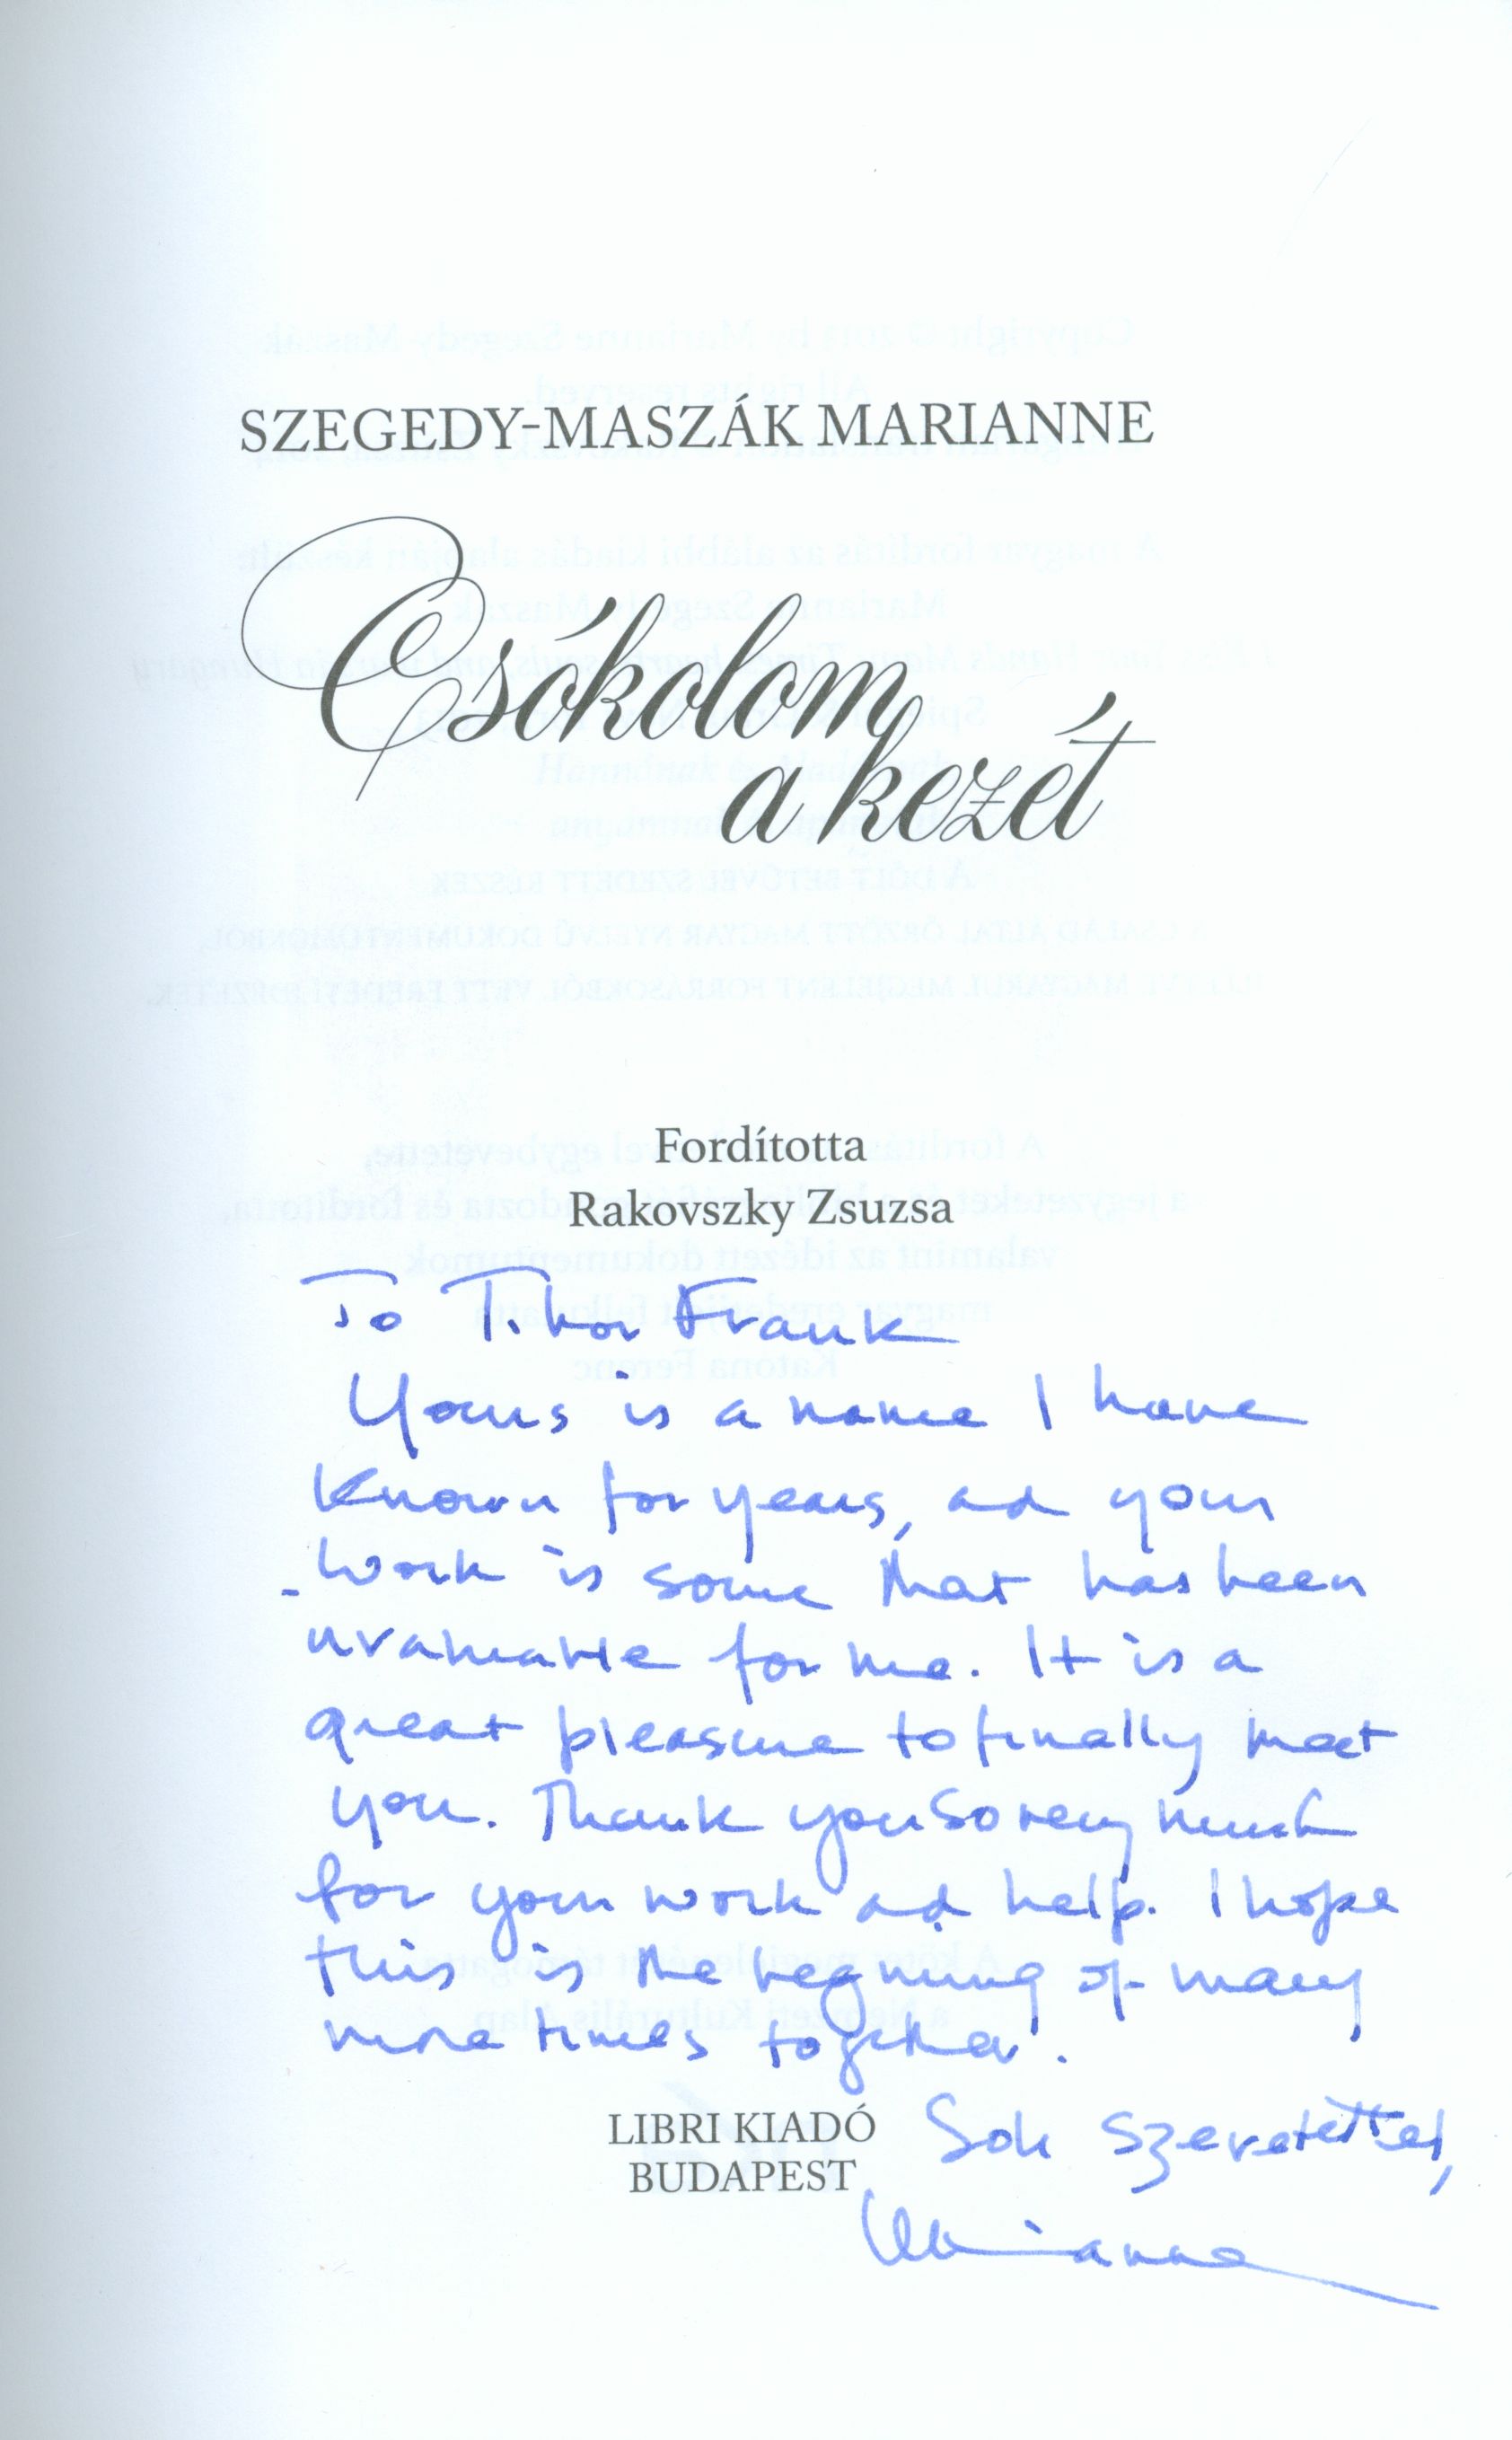 SZEGEDY-MASZÁK MARIANNE
Csókolom
a kezét
Fordította
Rakovszky Zsuzsa
To Tibor Frank
Yours is a name I have
known for years, ad your
work is some that has been
invaluable for me. It is a
great pleasure to finally meet
you. Thank you so very much
for your work ad help. I hope
this is the beginning of many
more times together.
LIBRI KIADÓ
BUDAPEST
Sok szeretettel,
Marianne